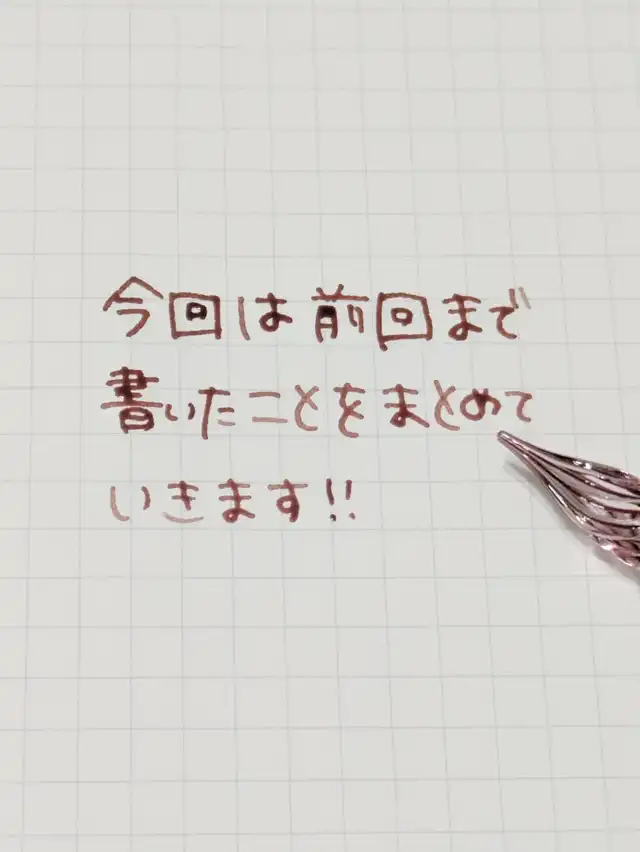 今回は前回まで
書いたことをまとめて
いきます!!